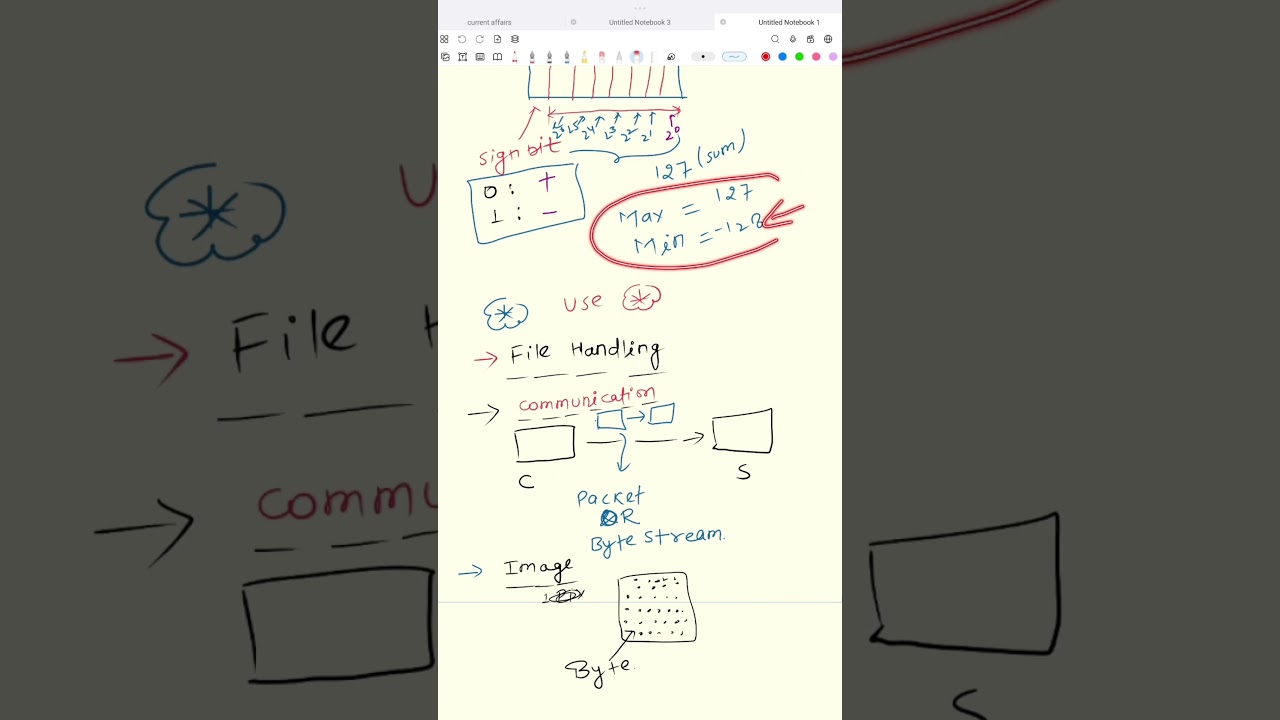 current affairs
Untitled Notebook 3
Untitled Notebook 1
2⁶ 2⁵ 2⁴ 2³ 2² 2¹ 2⁰
sign bit
127 (sum)
0 : +
1 : -
Max = 127
Min = -128
use
File Handling
communication
C
S
Packet
OR
Byte stream.
Image
Byte.
File H
commu
S